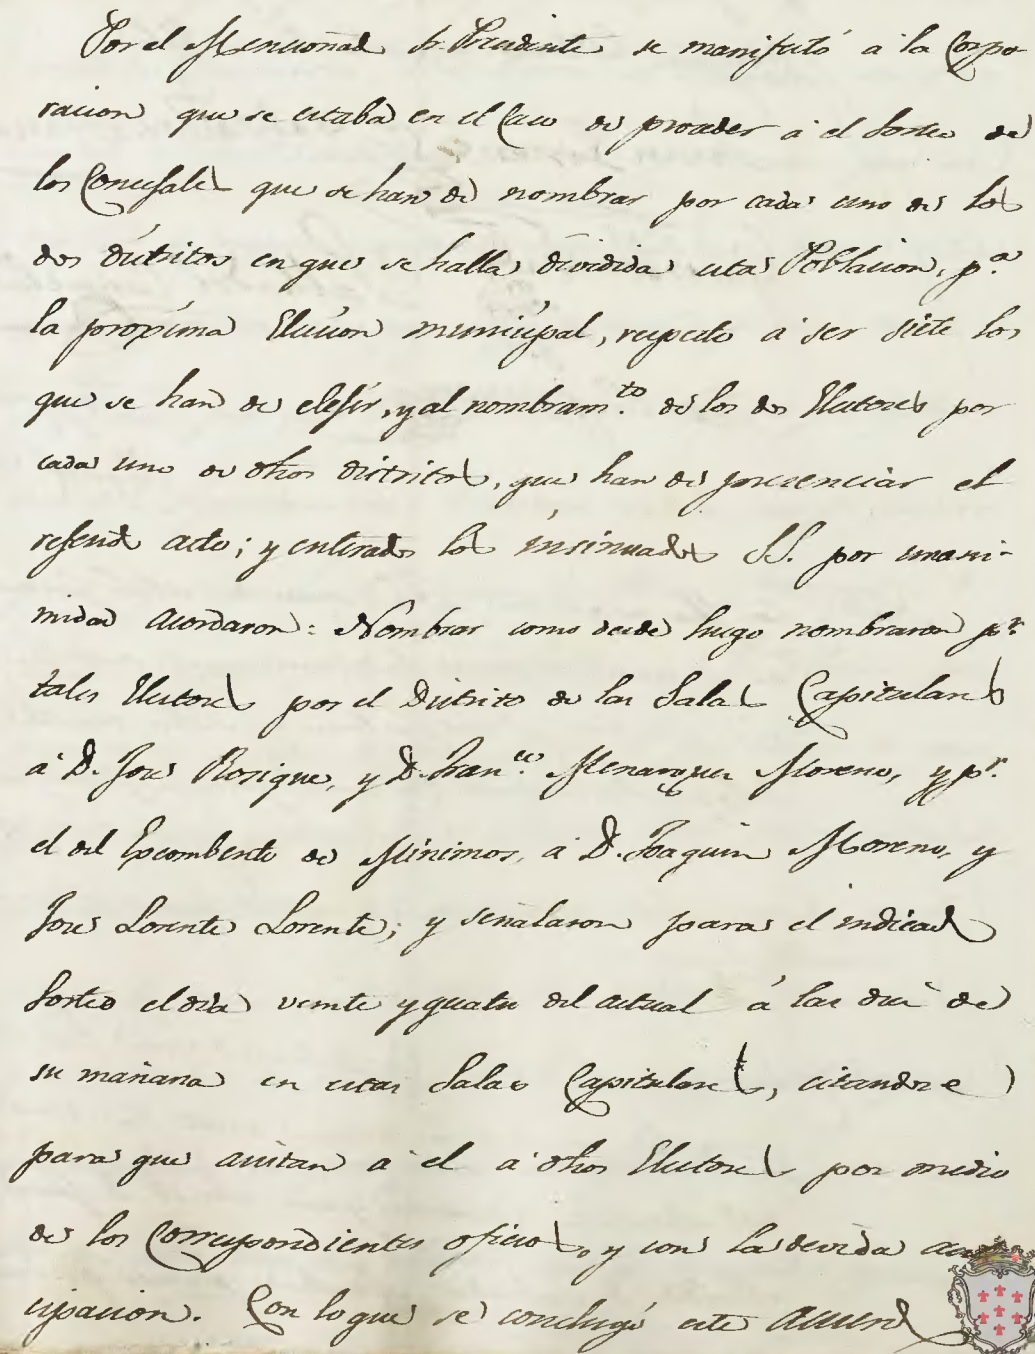 Por el Mencionado Sr. Presidente se manifestó á la Corpo-
racion que se estaba en el Caso de proceder á el Sorteo de
los Concejales que se han de nombrar por cada uno de los
dos distritos en que se halla dividida esta Poblacion, p.ª
la proxima Eleccion municipal, respecto á ser siete los
que se han de elejir, y al nombram.to de los dos Electores por
cada uno de dhos distritos, que han de presenciar el
referido acto; y enterados los insinuados SS. por unani-
midad acordaron: Nombrar como desde luego nombraron p.r
tales Electores por el Distrito de las Salas Capitulares
á D. Jose Rosique, y D. Fran.co Menarquez Moreno, y p.r
el del Excombento de Minimos, á D. Joaquin Moreno, y
Jose Lorente Lorente; y señalaron para el indicado
Sorteo el dia veinte y quatro del actual á las diez de
su mañana en estas Salas Capitulares, citandose
para que asistan á el á dhos Electores por medio
de los Correspondientes oficios, y con la devida
cipacion. Con lo que se concluyó este acuerdo